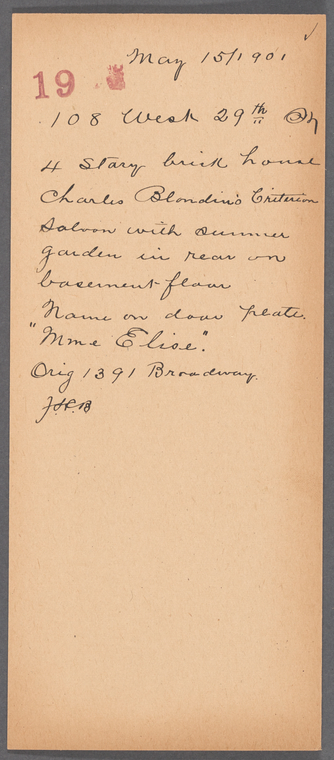 May 15/1901
19
108 West 29th St
4 Story brick house
Charles Blondin's Criterion
Saloon with summer
garden in rear on
basement floor
Name on door plate.
"Mme Elise".
Orig 1391 Broadway.
J.H.B